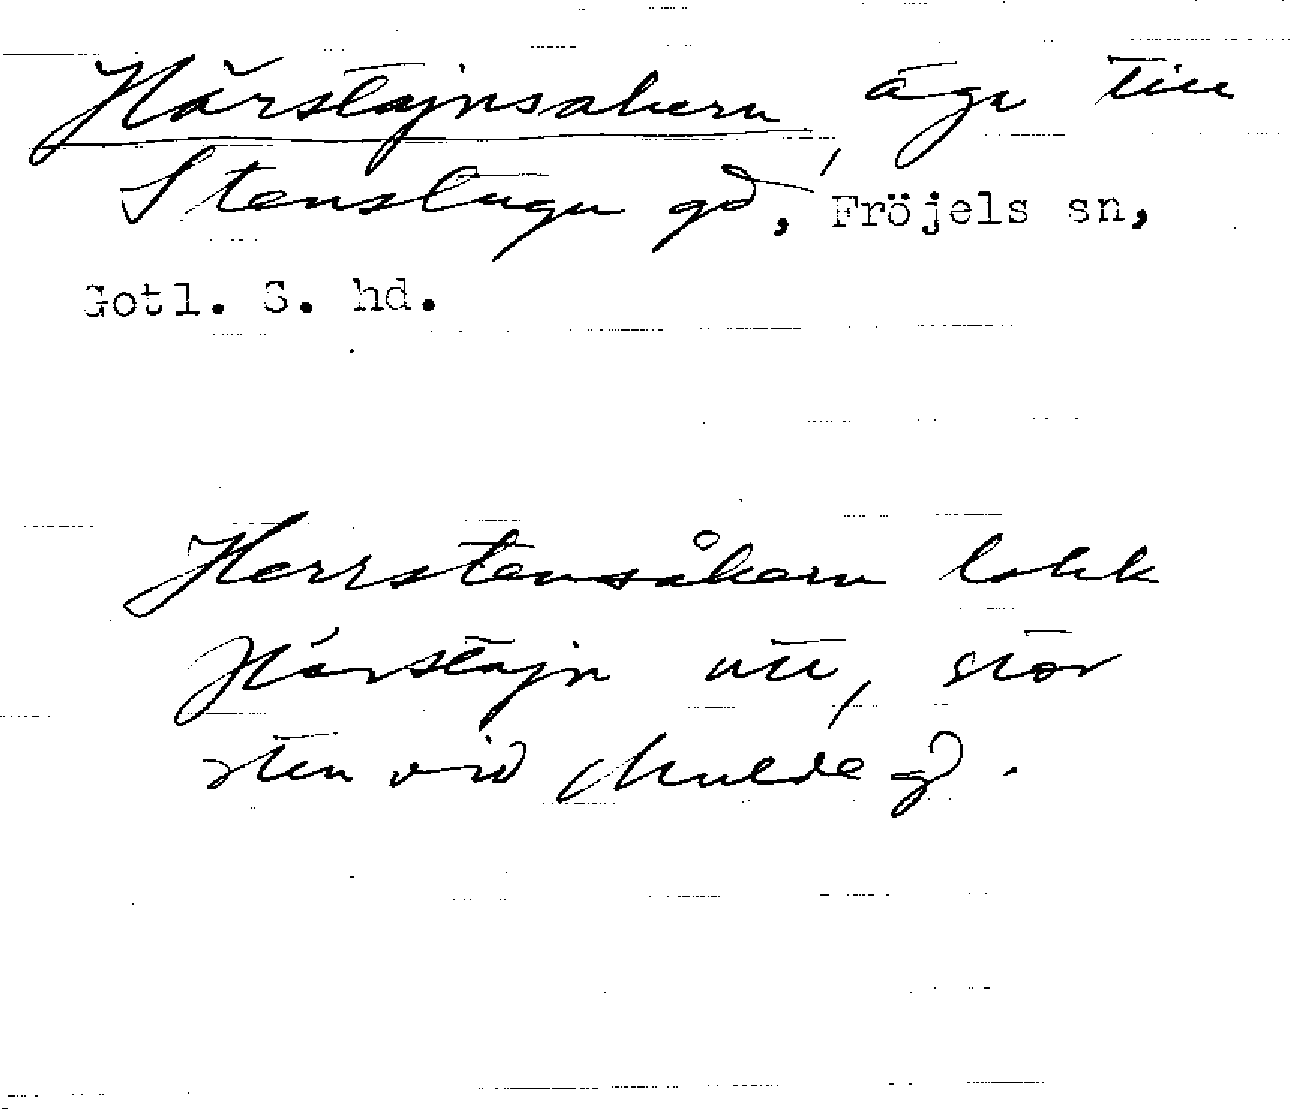 Härstajnsakern, äga till
Stenstugu gd, Fröjels sn,
Gotl. S. hd.
Herrstensåkern
Härstajn stor
sten vid Mulde gd.